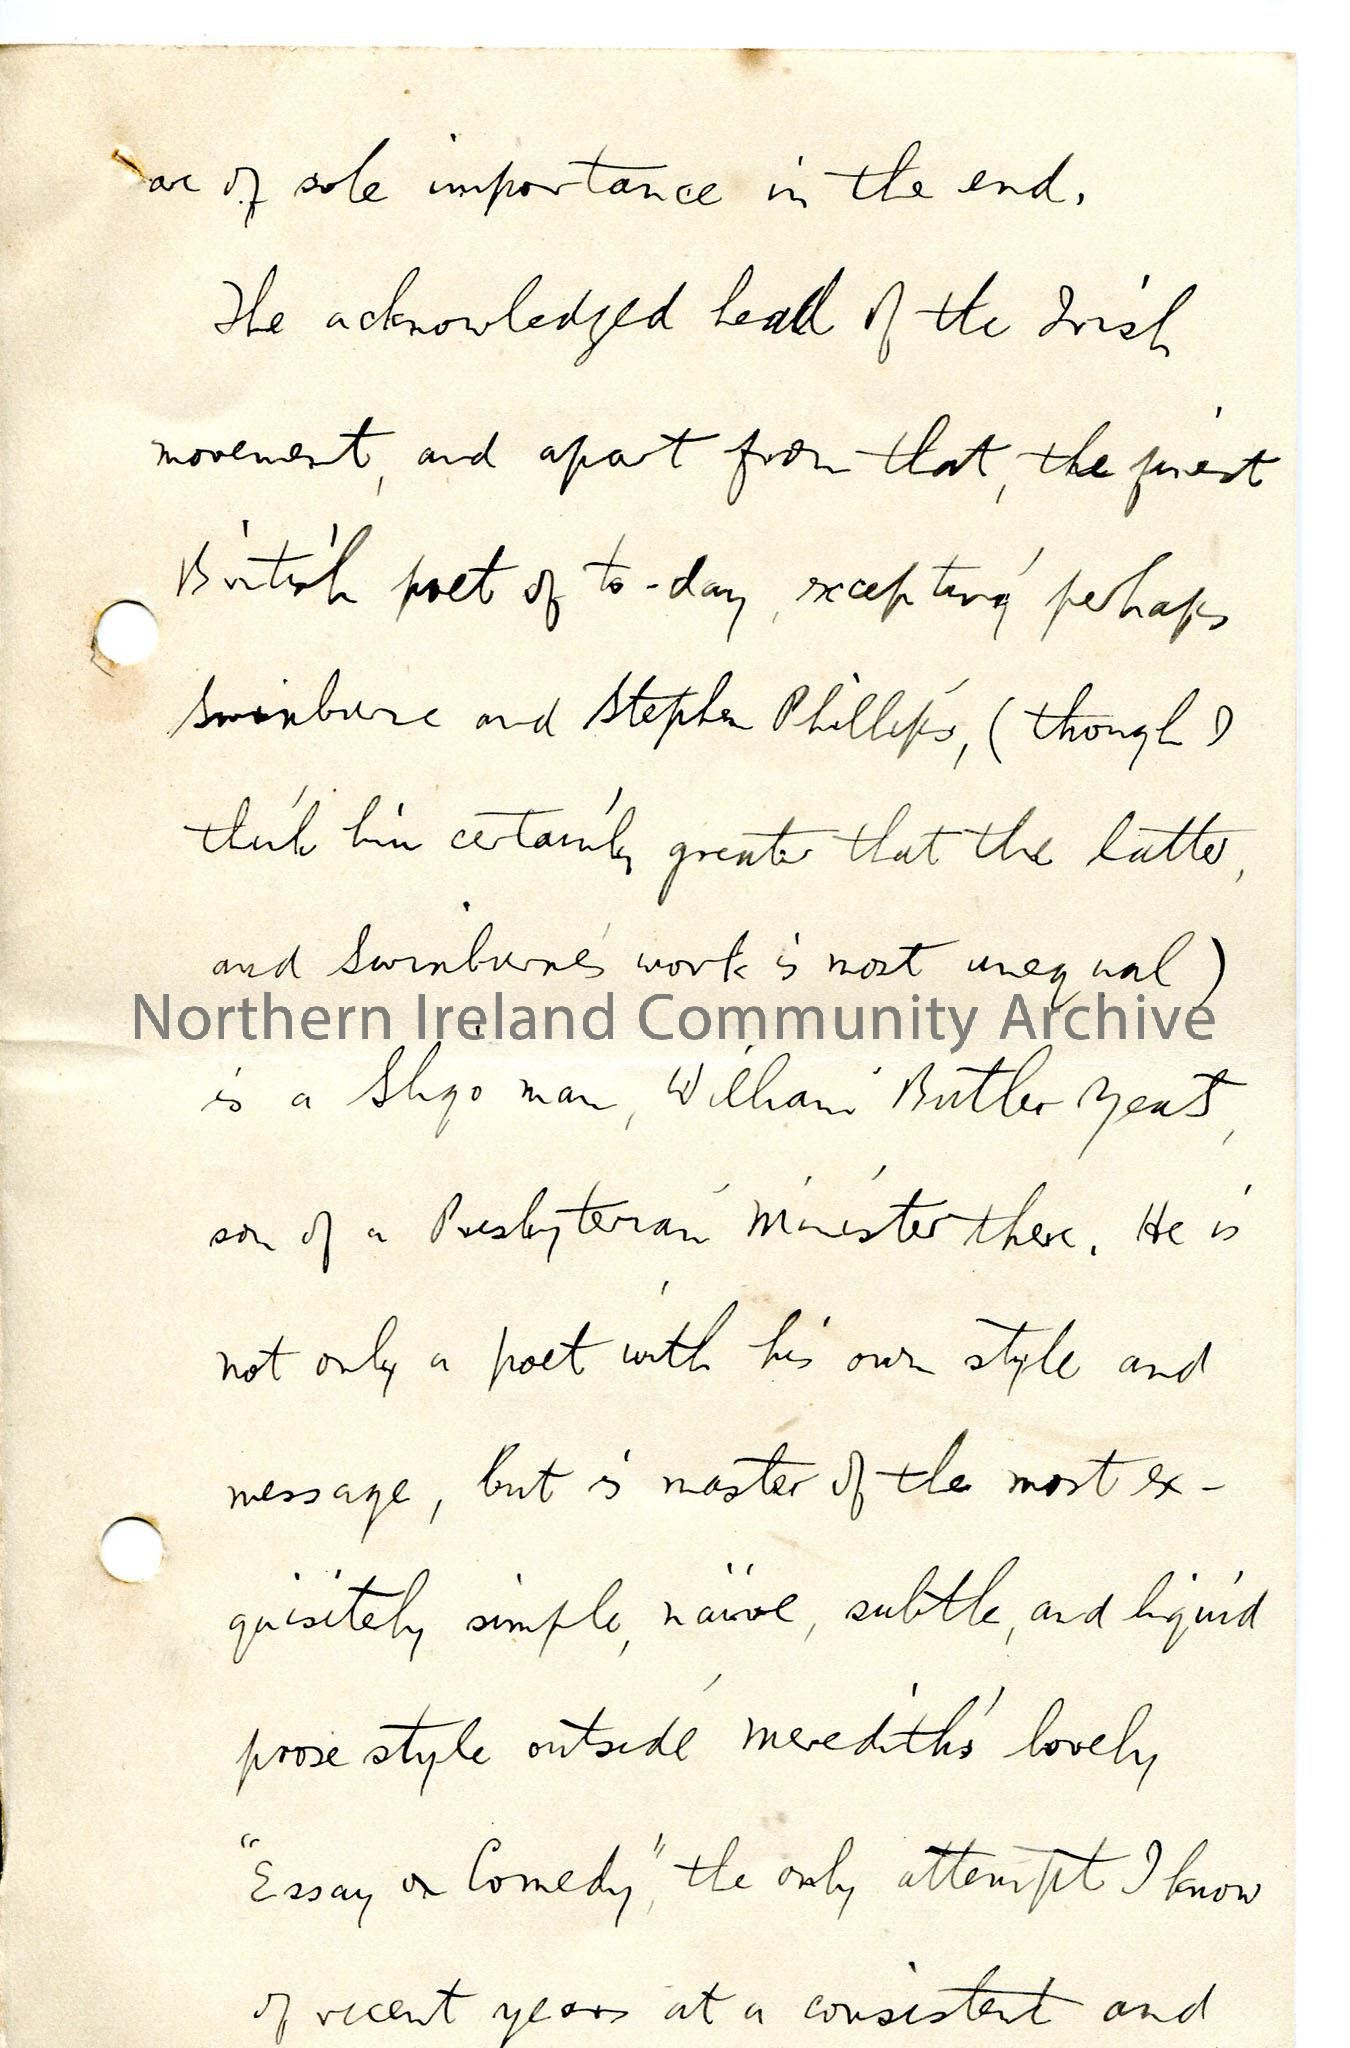 are of sole importance in the end.
The acknowledged head of the Irish
movement, and apart from that, the finest
British poet of to-day, excepting perhaps
Swinburne and Stephen Phillips, (though I
think him certainly greater that the latter,
and Swinburne's work is most unequal)
Northern Ireland Community Archive
is a Sligo man, William Butler Yeats,
son of a Presbyterian Minister there. He is
not only a poet with his own style and
message, but is master of the most ex-
quisitely simple, naïve, subtle, and liquid
prose style outside Meredith's lovely
"Essay on Comedy", the only attempt I know
of recent years at a consistent and